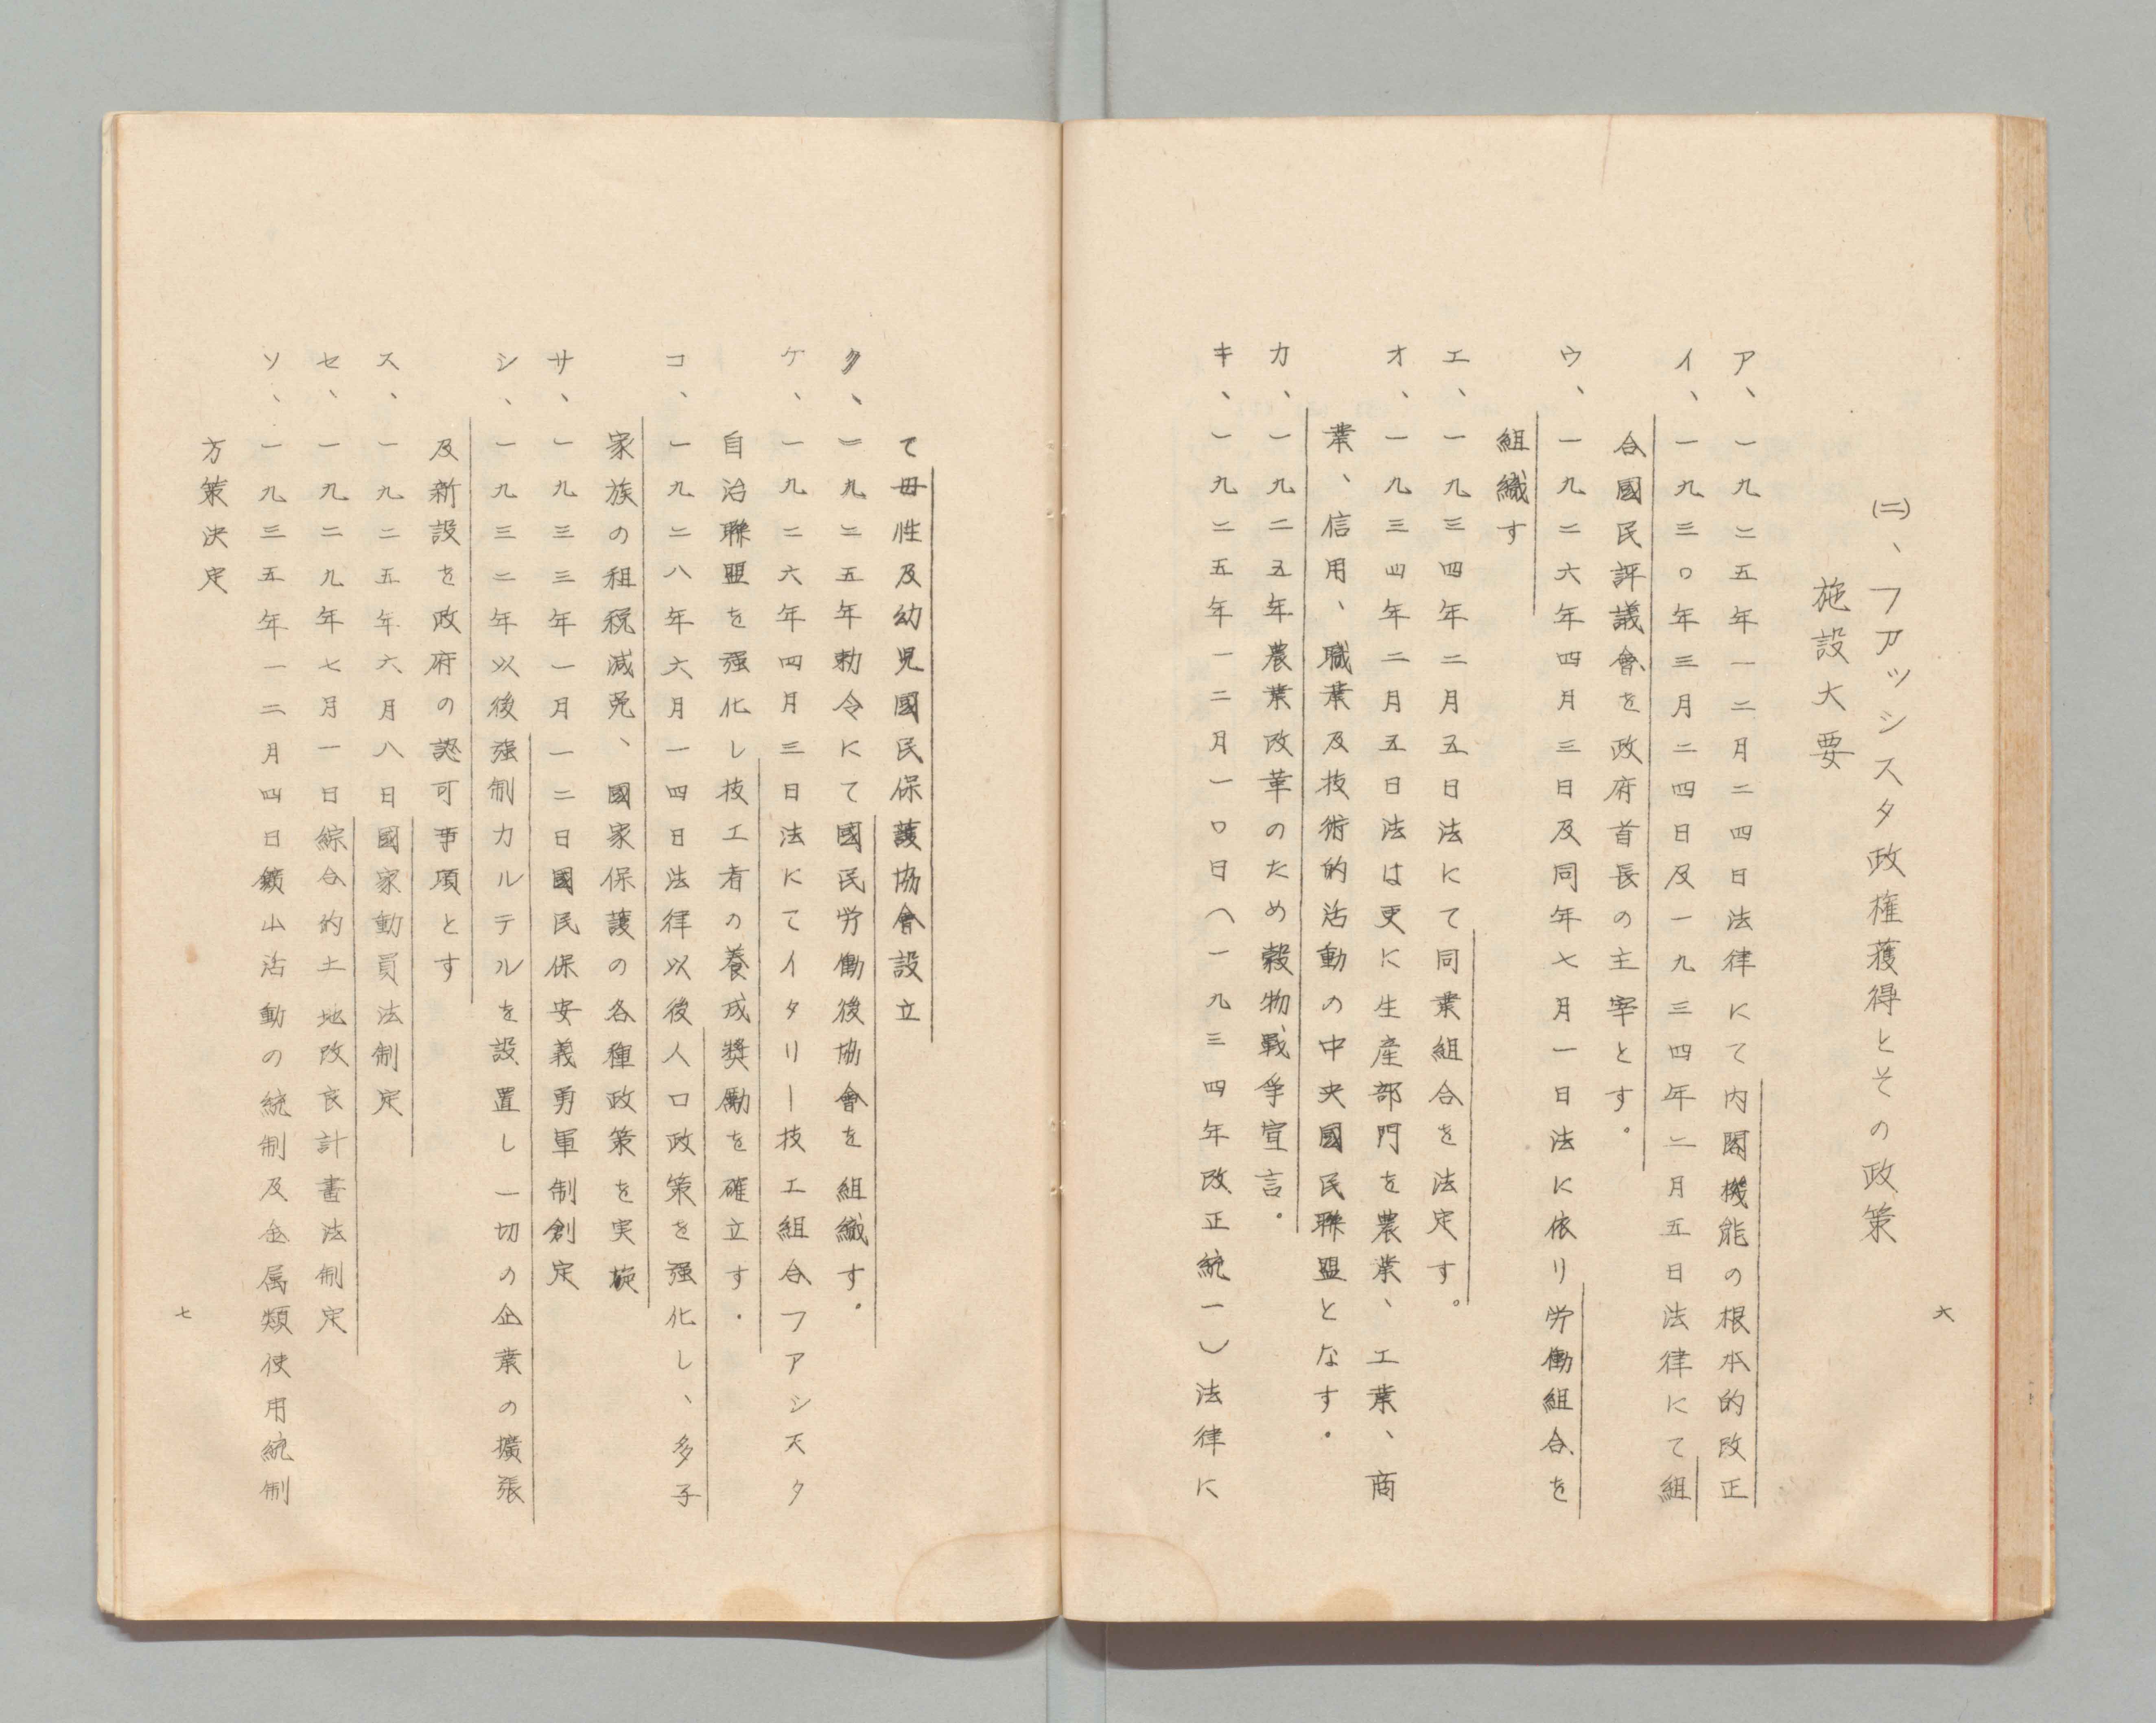 六
㈡、フアッシスタ政権獲得とその政策
施設大要
ア、一九二五年一二月二四日法律にて内閣機能の根本的改正
イ、一九三〇年三月二四日及一九三四年二月五日法律にて組
合國民評議會を政府首長の主宰とす。
ウ、一九二六年四月三日及同年七月一日法に依り労働組合を
組織す
エ、一九三四年二月五日法にて同業組合を法定す。
オ、一九三四年二月五日法は更に生産部門を農業、工業、商
業、信用、職業及技術的活動の中央國民聯盟となす.
カ、一九二五年農業改革のため穀物戰争宣言.
キ、一九二五年一二月一〇日(一九三四年改正統一)法律に
て母性及幼児國民保護協會設立
ク、一九二五年勅令にて國民労働後協會を組織す.
ケ、一九二六年四月三日法にてイタリー技工組合フアシスタ
自治聯盟を强化し技工者の養成奬勵を確立す.
コ、一九二八年六月一四日法律以後人口政策を强化し、多子
家族の租税減免、國家保護の各種政策を実施
サ、一九三三年一月一二日國民保安義勇軍制創定
シ、一九三二年以後强制カルテルを設置し一切の企業の擴張
及新設を政府の認可事項とす
ス、一九二五年六月八日國家動員法制定
セ、一九二九年七月一日綜合的土地改良計畫法制定
ソ、一九三五年一二月四日鑛山活動の統制及金属類使用統制
方策決定
七